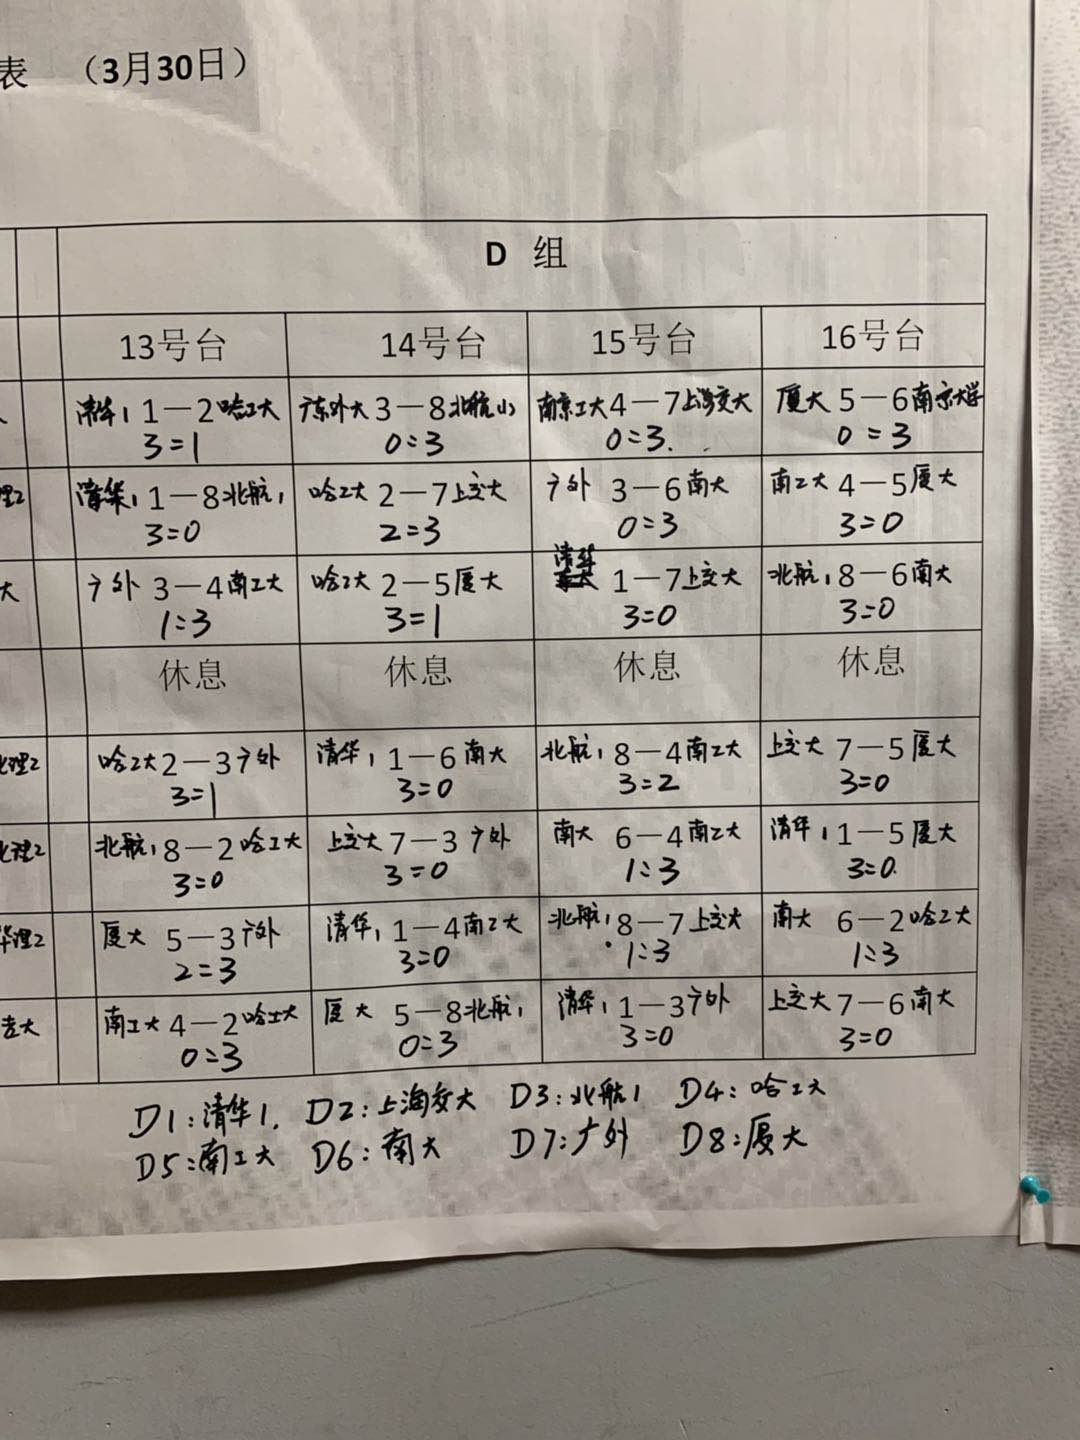 表 （3月30日）
D 组
13号台 14号台 15号台 16号台
清华1 1—2 哈工大 广东外大 3—8 北航1 南京工大 4—7 上海交大 厦大 5—6 南京大学
3=1 0=3 0=3. 0=3
理2 清华1 1—8 北航1 哈工大 2—7 上交大 广外 3—6 南大 南工大 4—5 厦大
3=0 2=3 0=3 3=0
清华
大 广外 3—4 南工大 哈工大 2—5 厦大 1—7 上交大 北航1 8—6 南大
1=3 3=1 3=0 3=0
休息 休息 休息 休息
北理2 哈工大 2—3 广外 清华1 1—6 南大 北航1 8—4 南工大 上交大 7—5 厦大
3=1 3=0 3=2 3=0
北理2 北航1 8—2 哈工大 上交大 7—3 广外 南大 6—4 南工大 清华1 1—5 厦大
3=0 3=0 1=3 3=0.
华理2 厦大 5—3 广外 清华1 1—4 南工大 北航1 8—7 上交大 南大 6—2 哈工大
2=3 3=0 1=3 1=3
吉大 南工大 4—2 哈工大 厦大 5—8 北航1 清华1 1—3 广外 上交大 7—6 南大
0=3 0=3 3=0 3=0
D1:清华1. D2:上海交大 D3:北航1 D4:哈工大
D5:南工大 D6:南大 D7:广外 D8:厦大